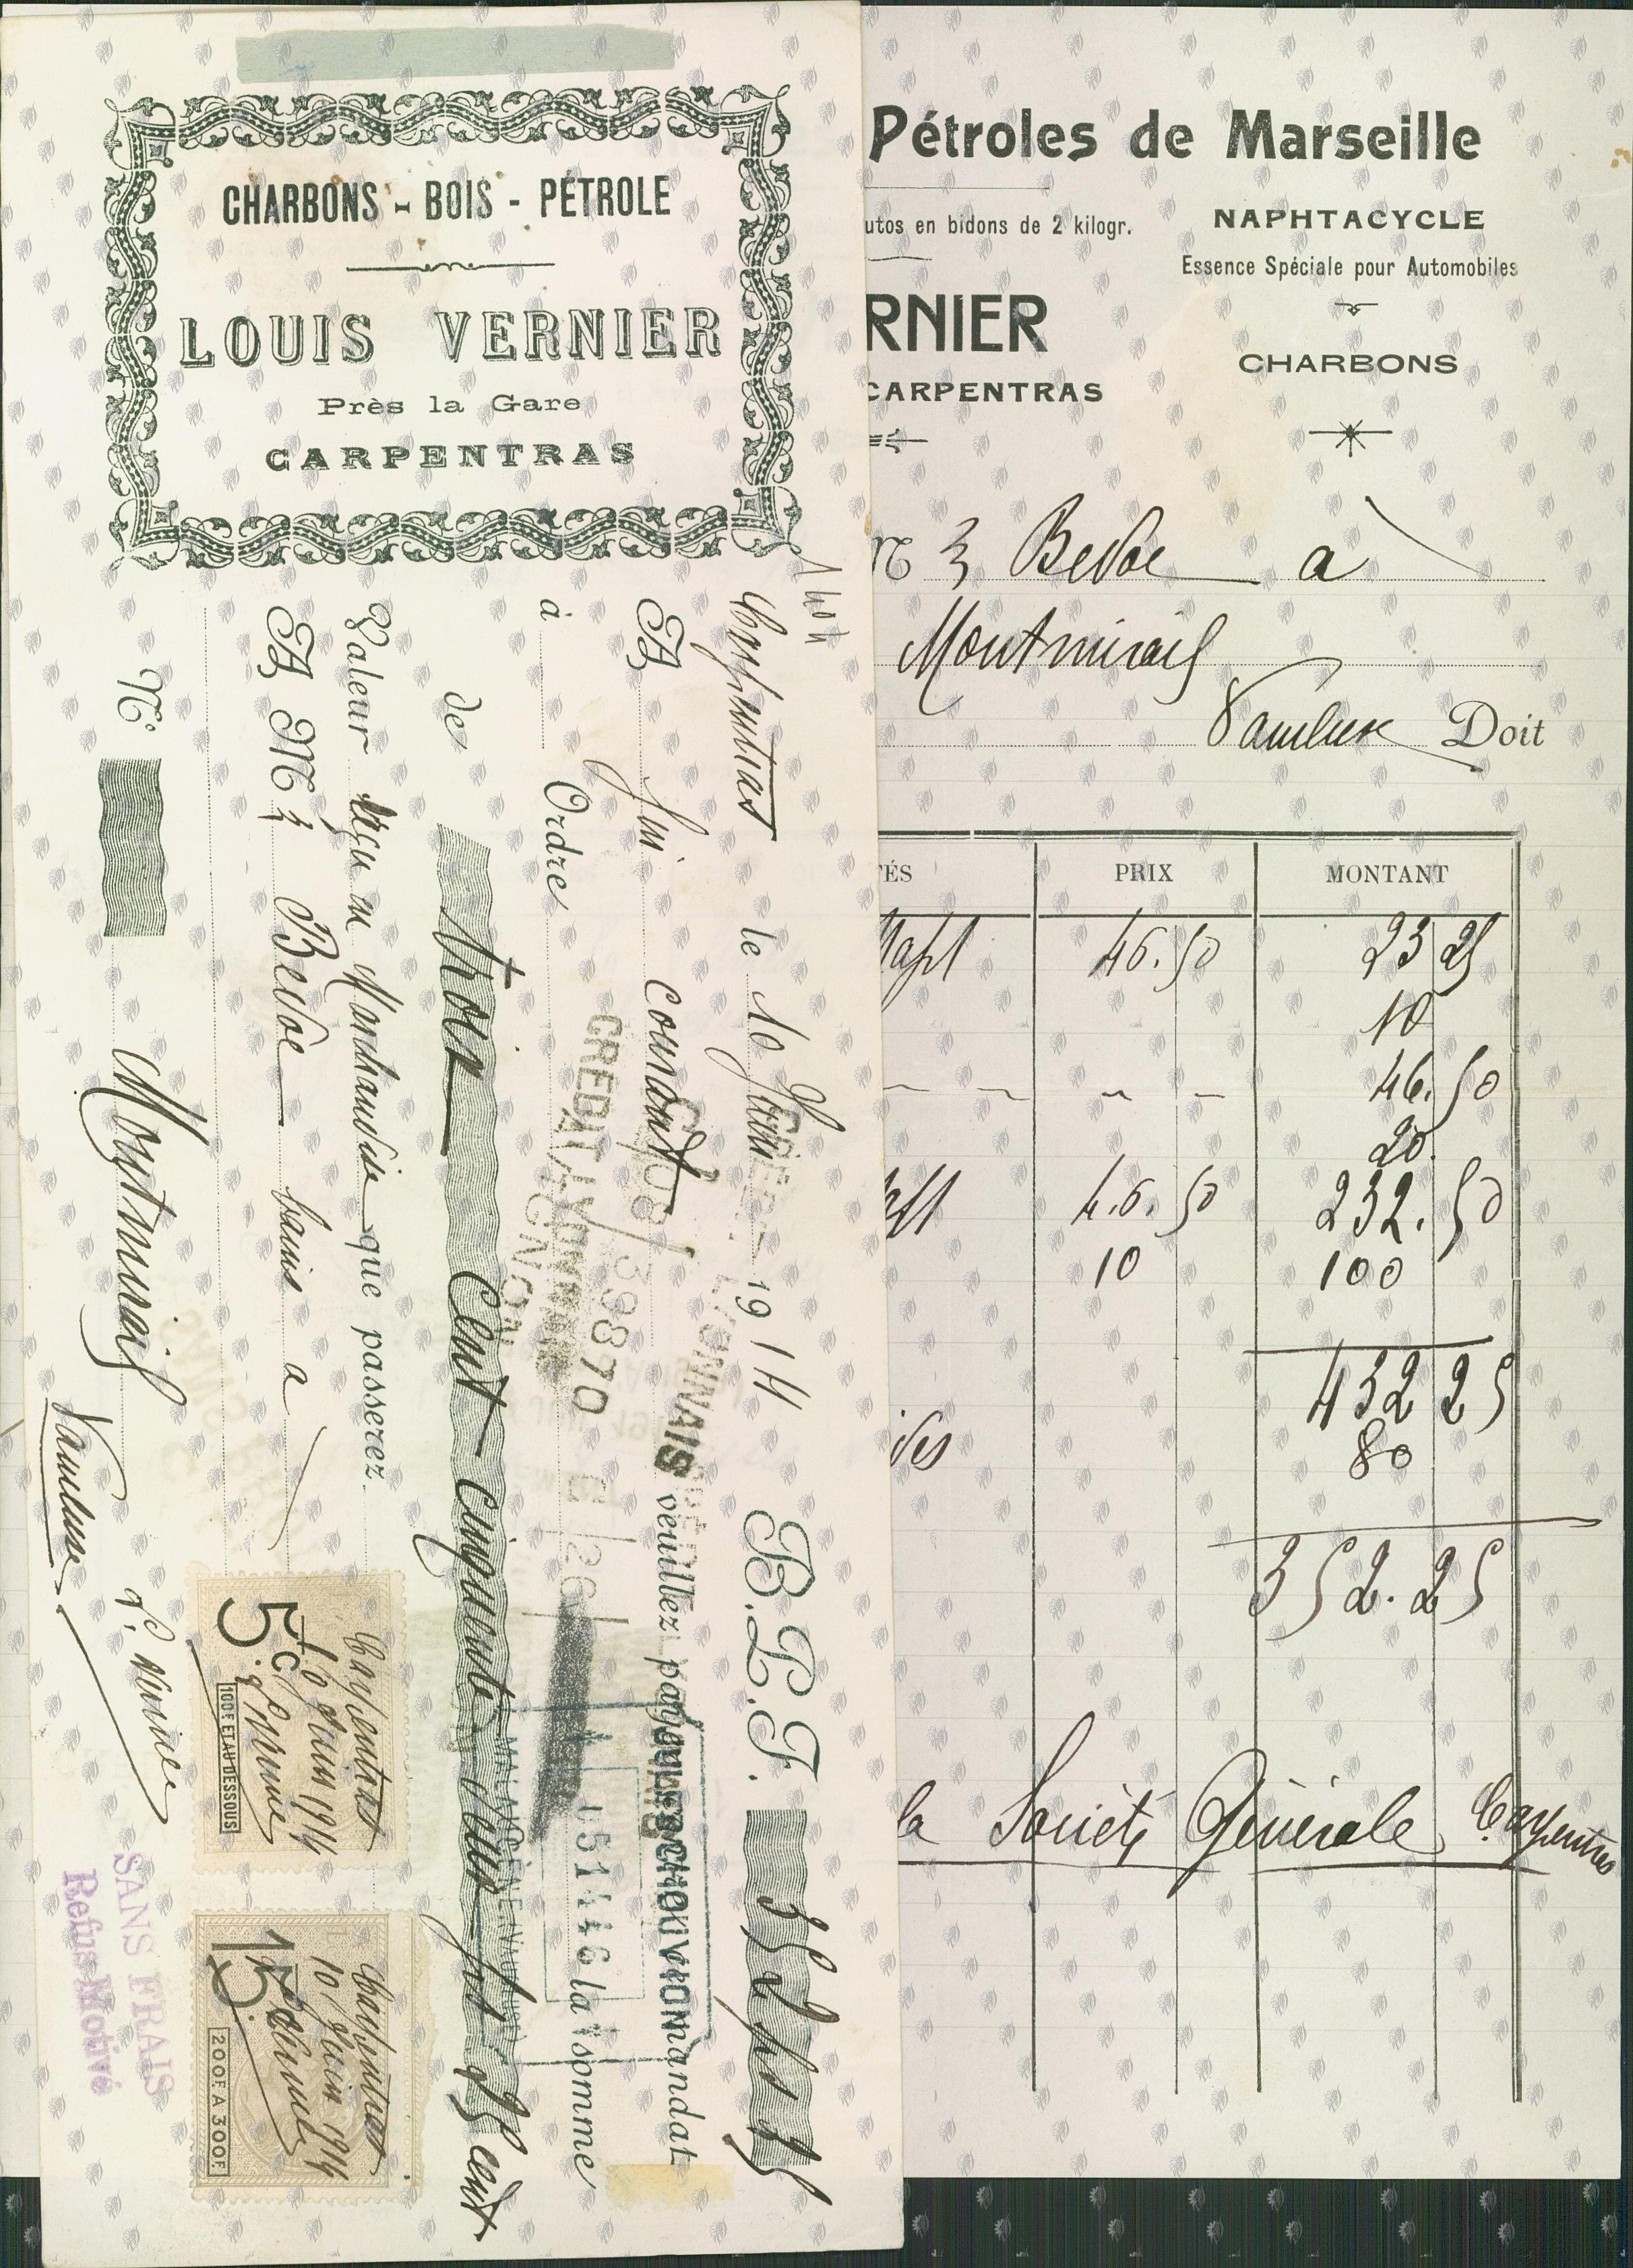 CHARBONS - BOIS - PÉTROLE
LOUIS VERNIER
Près la Gare
CARPENTRAS
Carpentras le 10 Juin 1914 B.P.F. 352 frs 25
A fin courant veuillez payer mandat
à Ordre la somme
CREDIT LYONNAIS
LYONNAIS
39870
051446
de trois cent cinquante deux frs 25 cent
Valeur reçu en Marchandise que passerez.
A Mr Bedoe bains a
N° Montmirail
Vaucluse
L. Vernier
5c
100F ET AU-DESSOUS
Carpentras
10 Juin 1914
L Vernier
15c
200F A 300F
Carpentras
10 Juin 1914
L Vernier
SANS FRAIS
Refus Motivé
Pétroles de Marseille
utos en bidons de 2 kilogr.
NAPHTACYCLE
Essence Spéciale pour Automobiles
RNIER
CHARBONS
CARPENTRAS
Bedoe a
Montmirail
Vaucluse Doit
TÉS PRIX MONTANT
46.50 23 25
10
46.50
20.
46.50 232.50
10 100
432 25
80
352.25
la Société Générale Carpentras